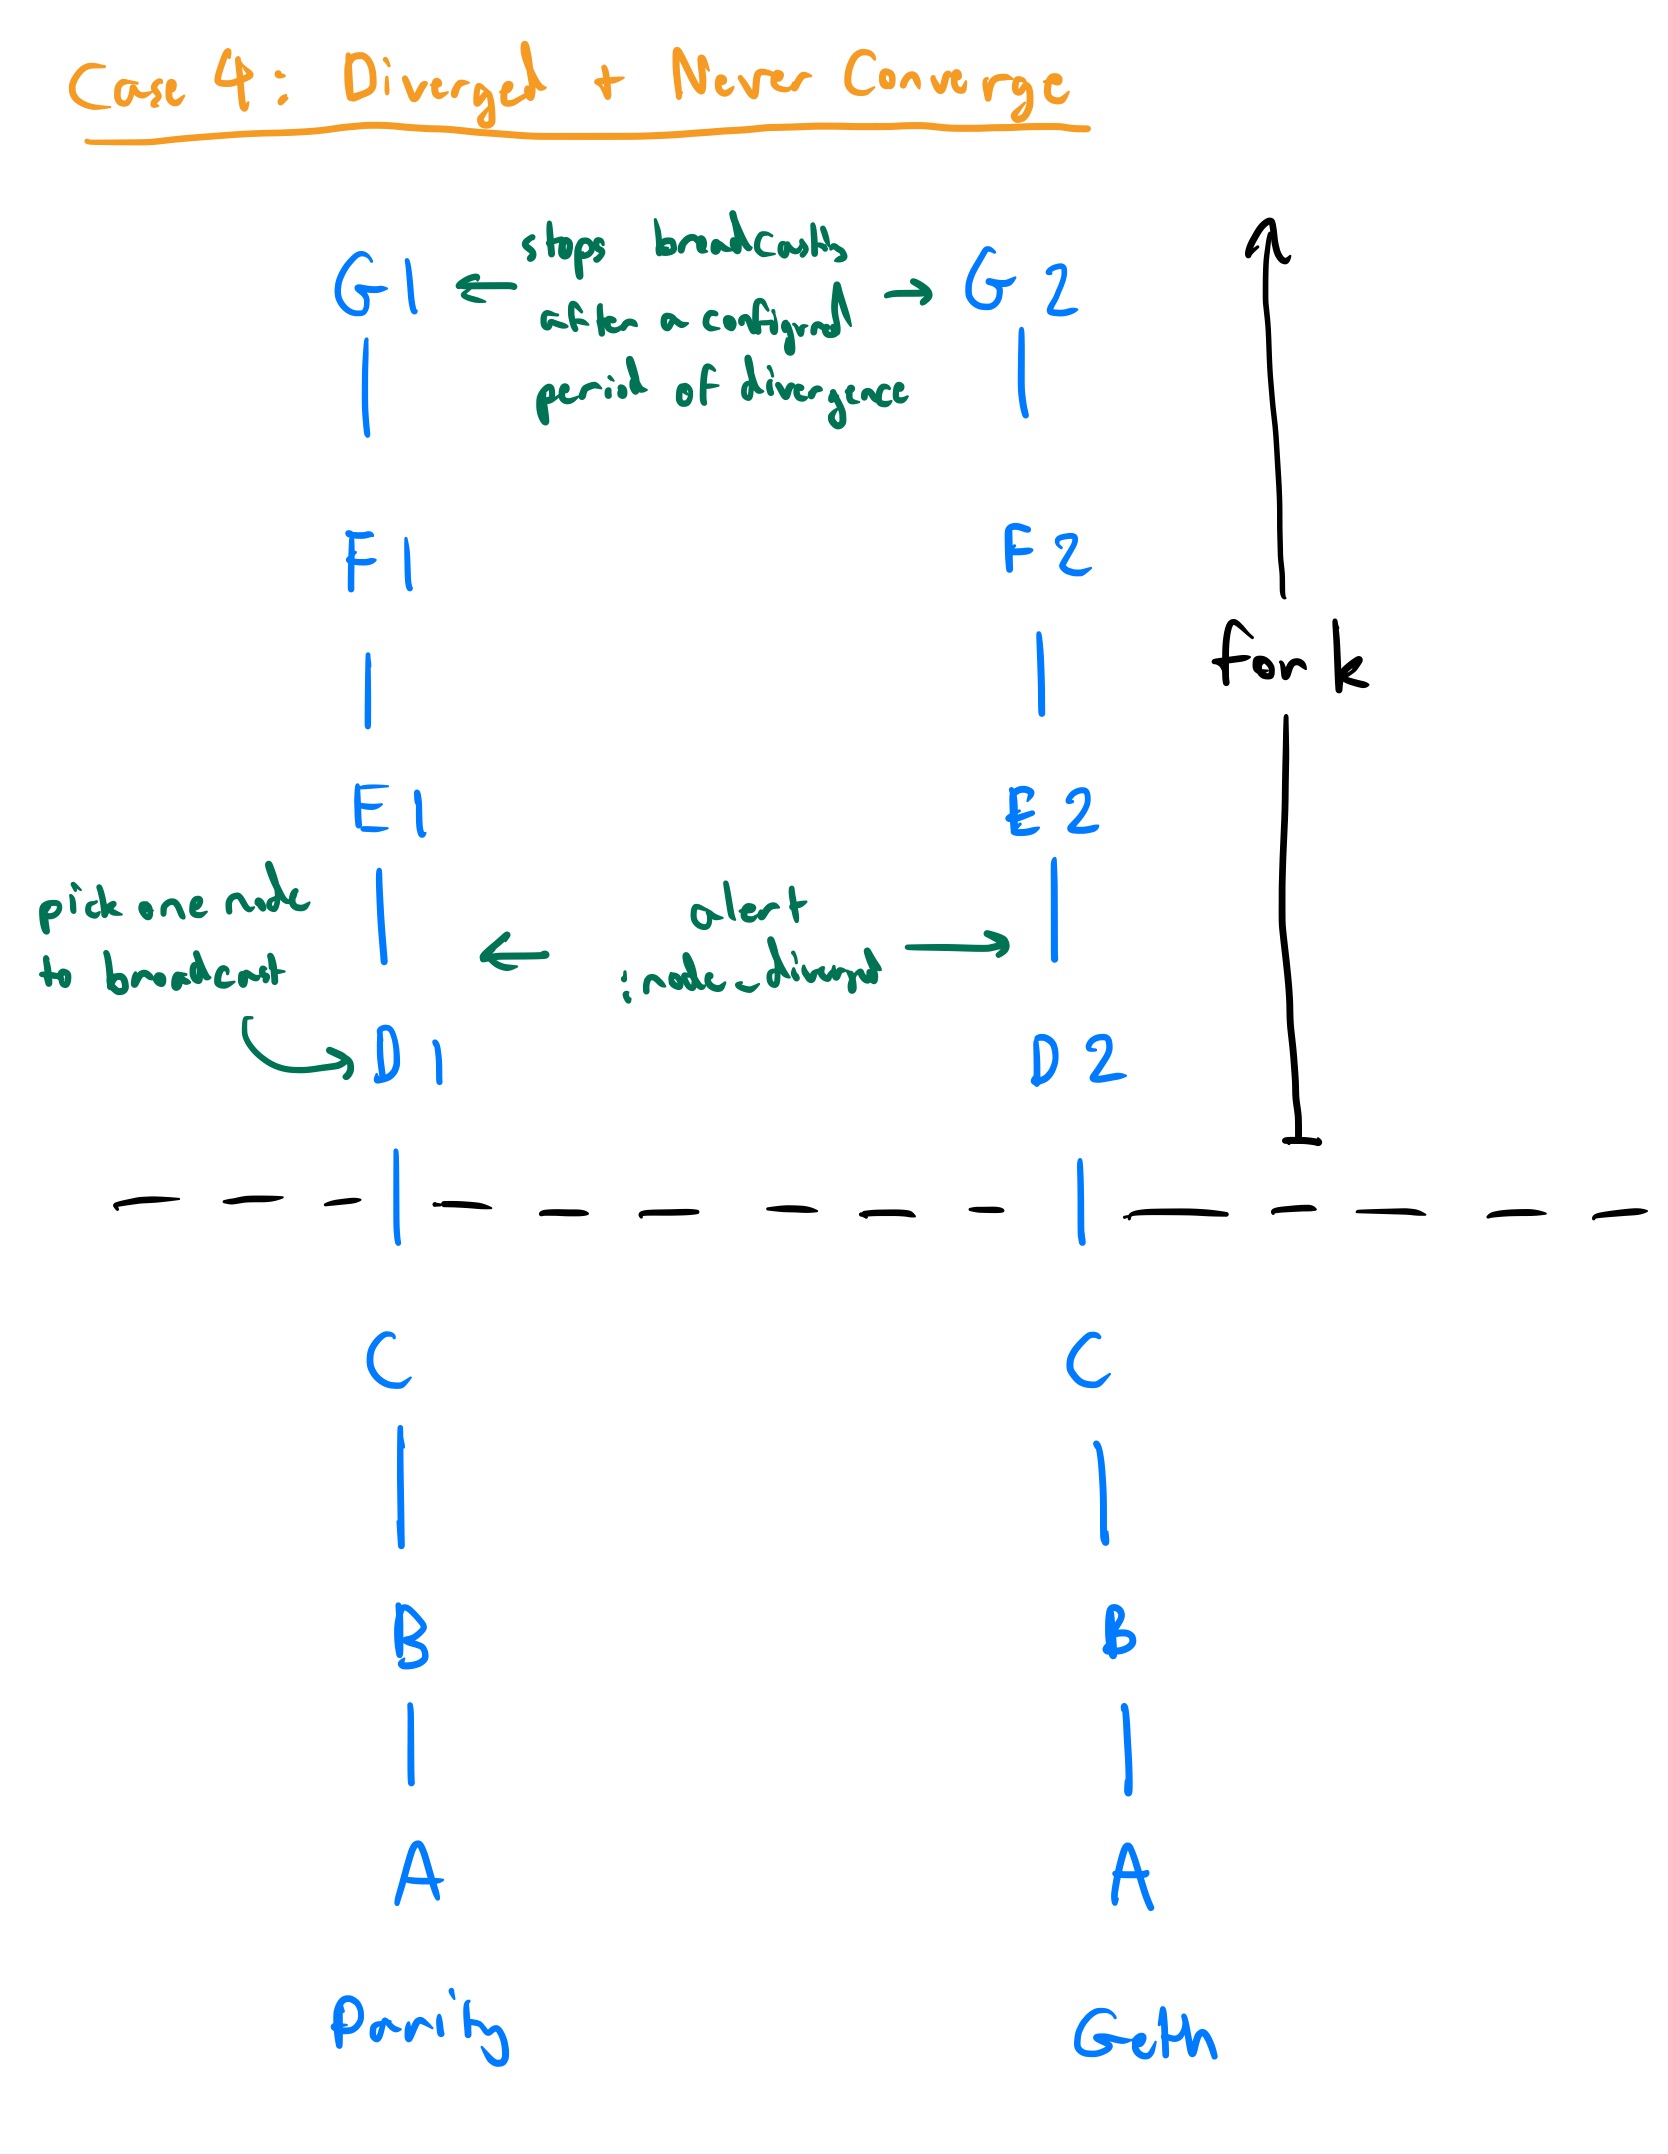 Case 4: Diverged + Never Converge
stops broadcasts
after a configured
period of divergence
G1
G2
F1
F2
fork
E1
E2
pick one node
to broadcast
alert
:node_diverged
D1
D2
C
C
B
B
A
A
Parity
Geth